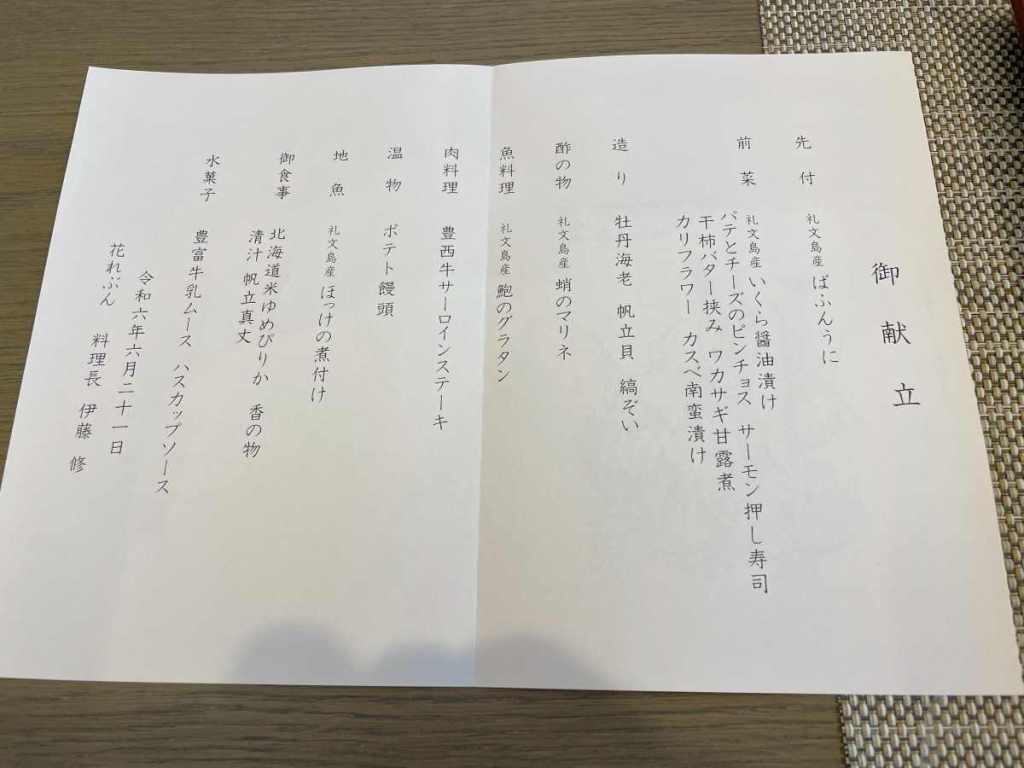 御献立
先付 礼文島産 ばふんうに
前菜 礼文島産 いくら醤油漬け
パテとチーズのピンチョス サーモン押し寿司
干柿バター挟み ワカサギ甘露煮
カリフラワー カスベ南蛮漬け
造り 牡丹海老 帆立貝 縞ぞい
酢の物 礼文島産 蛸のマリネ
魚料理 礼文島産 鮑のグラタン
肉料理 豊西牛サーロインステーキ
温物 ポテト饅頭
地魚 礼文島産 ほっけの煮付け
御食事 北海道米ゆめぴりか 香の物
清汁 帆立真丈
水菓子 豊富牛乳ムース ハスカップソース
令和六年六月二十一日
花れぶん 料理長 伊藤 修